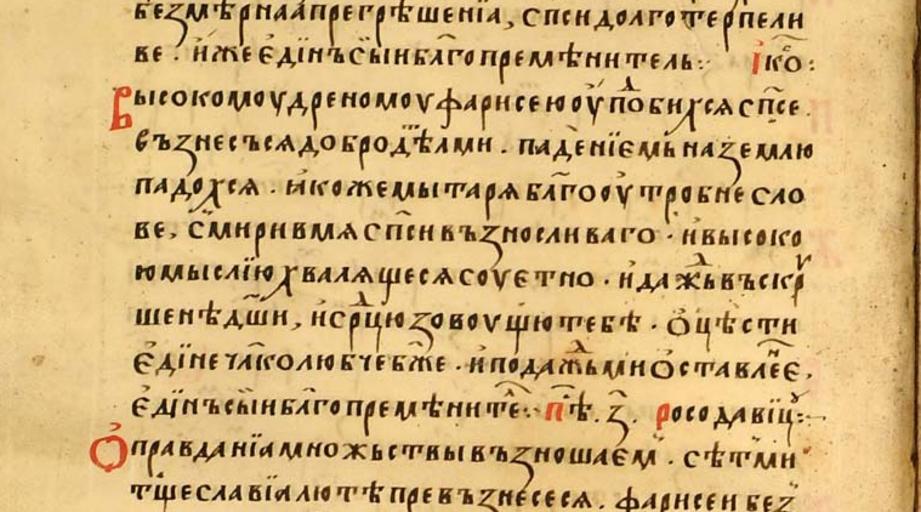 безмѣрнаа прегрѣшенїа, сп҃си долготерпели
ве · и҆же є҆ди́нъ сы́и бл҃гопремѣнитель : і҆ко҆́ :
Высокомоудреномоу фарисею оу҆поⷣбихся сп҃се
възнесъся добродѣ́лми · паденїе́мь на землю
падохся · ꙗ҆коже мытаря бл҃гооу҆тробне сло
ве, смиривмя сп҃си възносливаго · и҆ высоко
юмыслїю хвалящеся соуетно · и҆ даⷤжь въ скрꙋ
шенѣ дш҃и, и҆ срⷣцю зовоущю тебѣ · ѻ҆цѣсти
є҆дине чл҃колюбче бж҃е · и҆ подаⷤжь ми ѻ҆ставле́нїе,
є҆ди́нъ сы́и бл҃гопремѣните · пѣ҃. з҃. росодавїц :
Ѻ҆правданїа множьствы възношаем · сѣтми
тщеславїа лютѣ превъзнесеся · фарисеи без̾